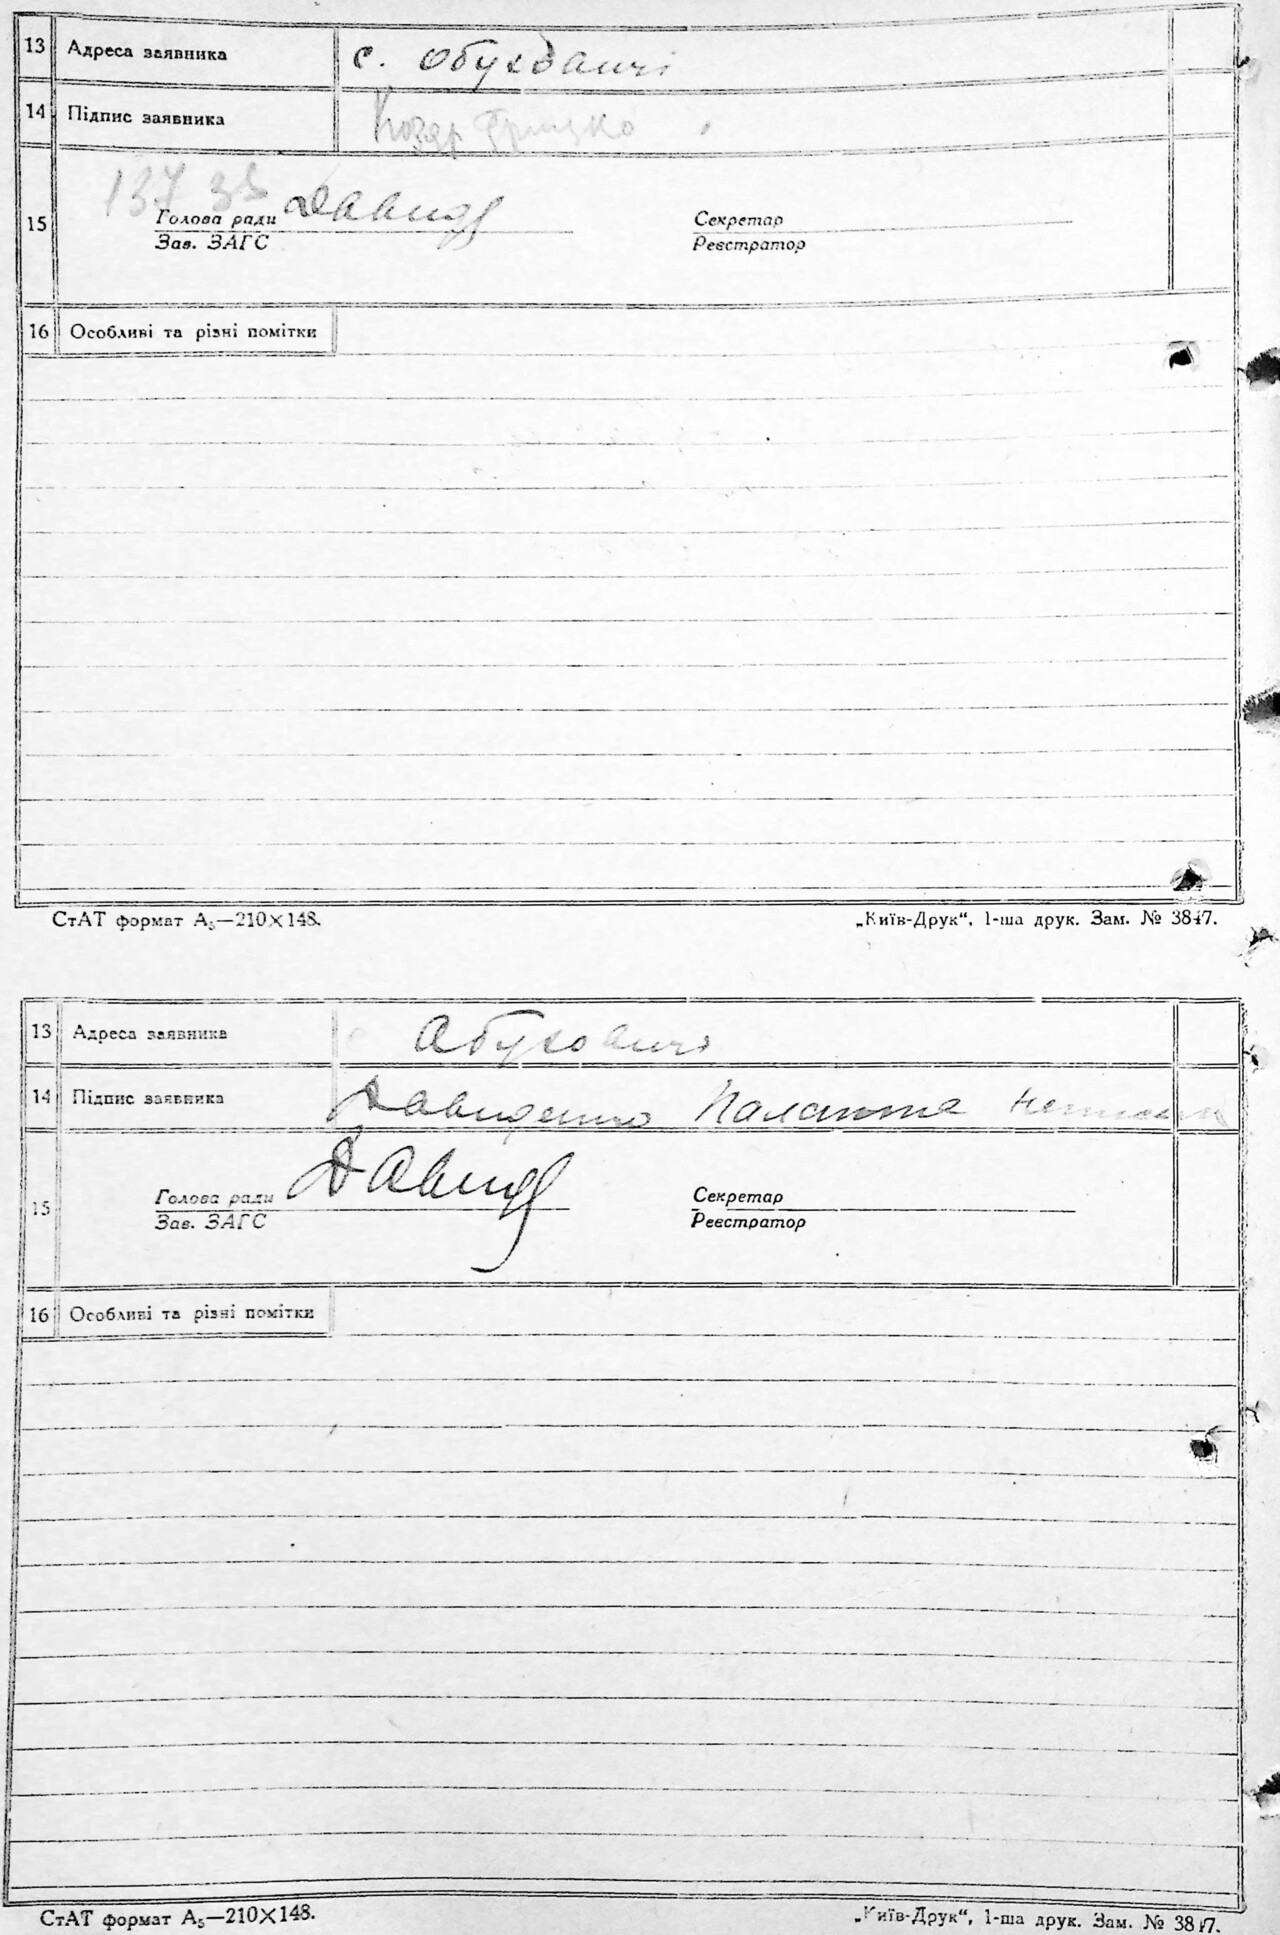 13 Адреса заявника с. Обуховичі
14 Підпис заявника Козяр Грицко
137 зв
15 Голова ради Давид
Зав. ЗАГС
Секретар
Реєстратор
16 Особливі та різні помітки
СтАТ формат А₅—210×148.
„Київ-Друк“, 1-ша друк. Зам. № 3847.
13 Адреса заявника Обуховичі
14 Підпис заявника Давиденко
15 Голова ради Давид
Зав. ЗАГС
Секретар
Реєстратор
16 Особливі та різні помітки
СтАТ формат А₅—210×148.
„Київ-Друк“, 1-ша друк. Зам. № 3847.